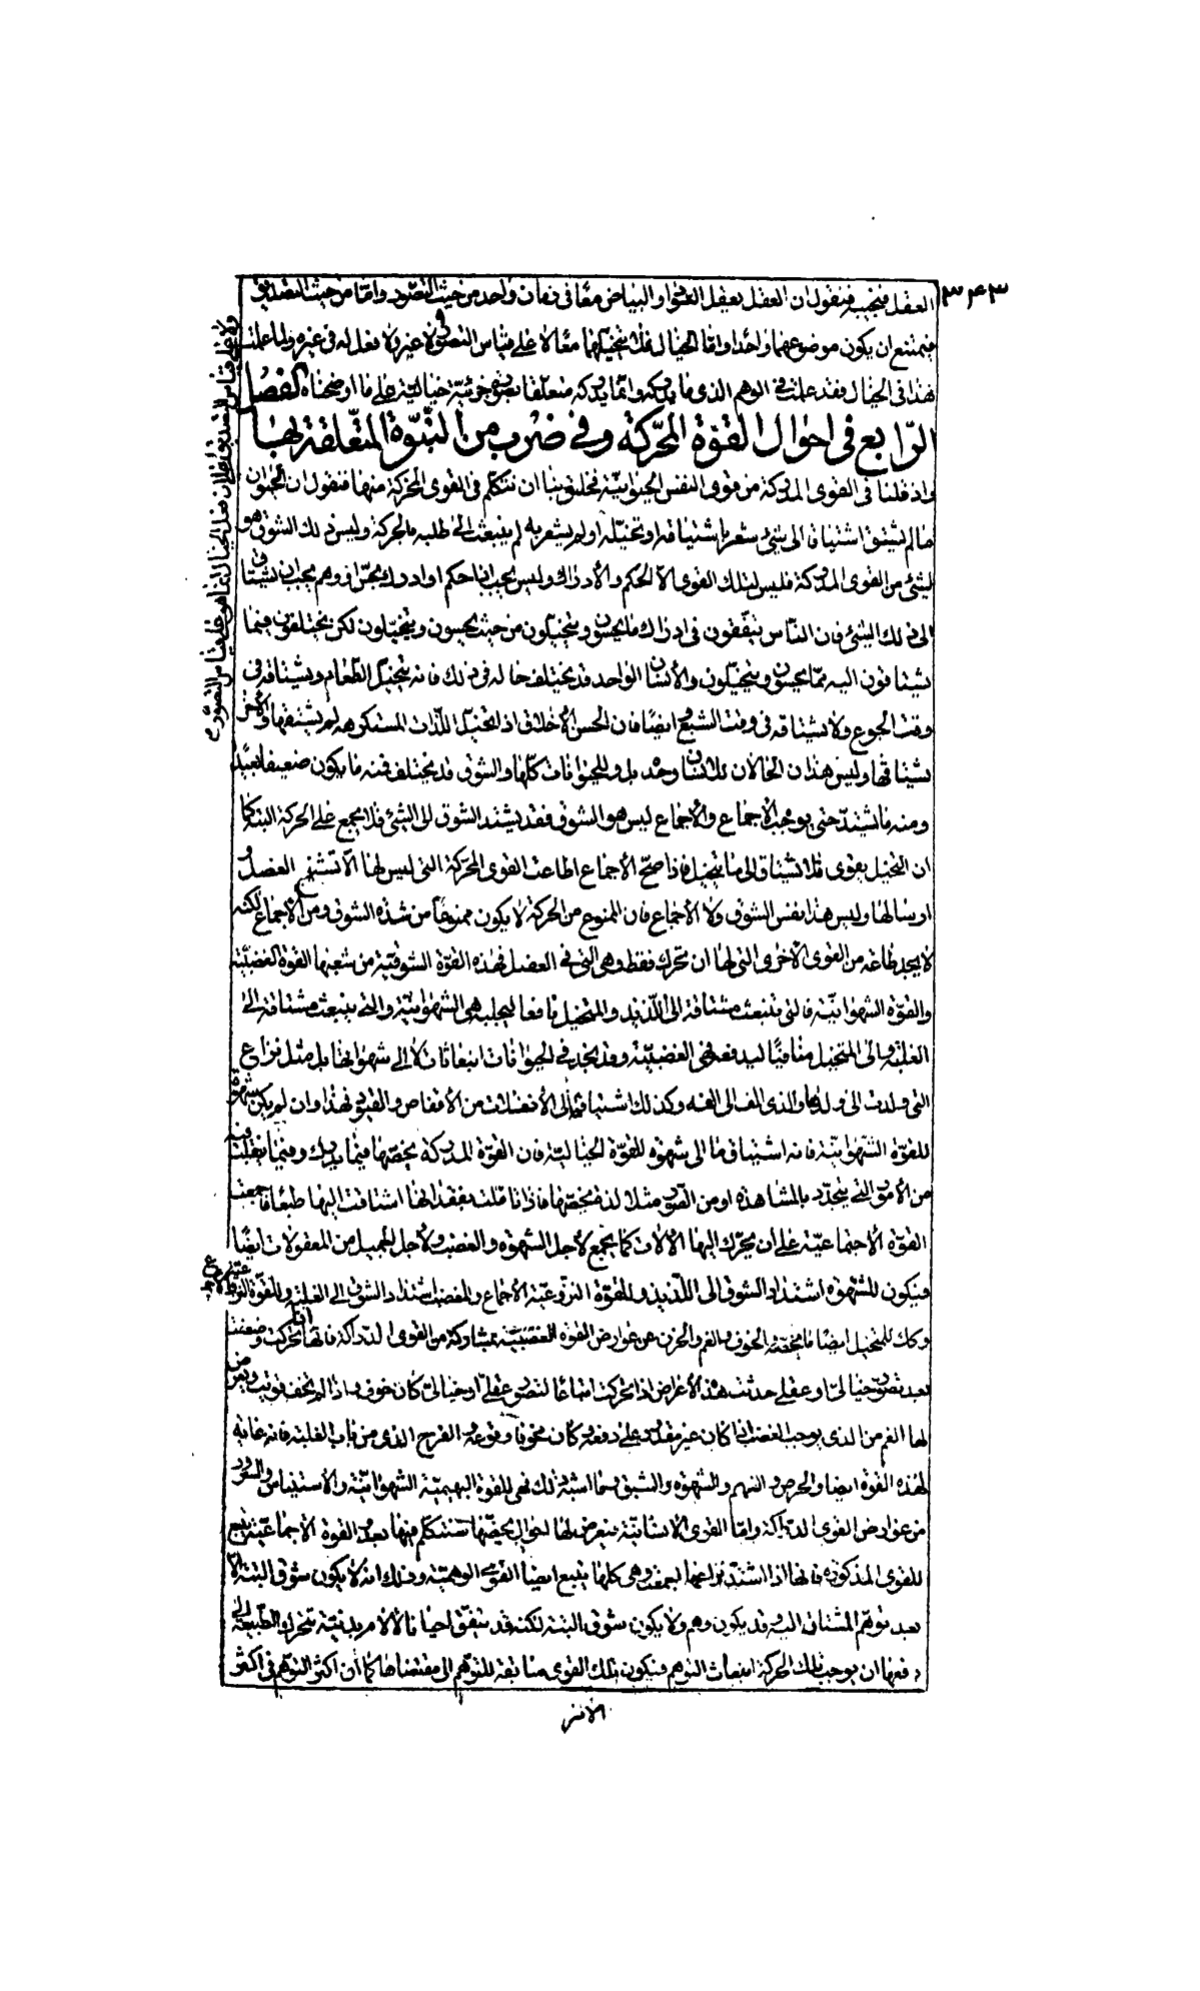 ٣٤٣
العقل فنجيب فنقول ان العقل يعقل السواد والبياض معا فى زمان واحد من حيث التصور واما من حيث التصديق
فيمتنع ان يكون موضوعهما واحدا واما الخيال فلا يتخيلهما معا لا على قياس التصور ولا غيره ولا فعل له فى غيره ولما علمت
هذا فى الخيال فقد علمت فى الوهم الذى ما يدركه وانما يدركه متعلقا بصورة جزئية خيالية على ما اوضحناه الفصل
الرابع فى احوال القوة المحركة وفى ضرب من النبوة المتعلقة بها
واذ قلنا فى القوى المدركة من قوى النفس الحيوانية فخليق بنا ان نتكلم فى القوى المحركة منها فنقول ان الحيوان
ما لم يشتق اشتياقا الى شئ شعر باشتياقه او تخيله او لم يشعر به لم ينبعث الى طلبه بالحركة وليس ذلك الشوق هو
لشئ من القوى المدركة فليس لتلك القوى الا الحكم والادراك وليس يجب اذا حكم او ادرك بحس او وهم يجب ان يشتاق
الى ذلك الشئ فان الناس يتفقون فى ادراك ما يحسون ويتخيلون من حيث يحسون ويتخيلون لكن يختلفون فيما
يشتاقون اليه مما يحسون ويتخيلون والانسان الواحد قد يختلف حاله فى ذلك فانه يتخيل الطعام ويشتاقه فى
وقت الجوع ولا يشتاقه فى وقت الشبع وايضا فان الحسن الاخلاق اذا تخيل اللذات المستكرهه لم يشتقها والاخر
يشتاقها وليس هذان الحالان للانسان وحده بل وللحيوانات كلها والشوق قد يختلف فمنه ما يكون ضعيفا بعد
ومنه ما يشتد حتى يوجب الاجماع والاجماع ليس هو الشوق فقد يشتد الشوق الى الشئ فلا يجمع على الحركة البتة كما
ان التخيل يقوى فلا يشتاق الى ما يتخيل فاذا صح الاجماع اطاعت القوى المحركة التى ليس لها الا تشنج العضل و
ارسالها وليس هذا نفس الشوق ولا الاجماع فان الممنوع من الحركة لا يكون ممنوعا من شدة الشوق ومن الاجماع لكنه
لا يجد طاعة من القوى الاخرى التى لها ان تحرك فقط وهى التى فى العضل فهذه القوة الشوقية من شعبها القوة الغضبية
والقوة الشهوانية فالتى تنبعث مشتاقة الى اللذيذ والمتخيل نافعا ليجلبه هى الشهوانية والتى ينبعث مشتاقة الى
الغلبة والى المتخيل منافيا ليدفعه فهى الغضبية وقد يجد فى الحيوانات انبعاثات لا الى شهواتها بل مثل نزاع
التى ولدت الى ولدها والذى الف الى الفه وكذلك اشتياقها الى الانفلات من الاقفاص والقيود فهذا وان لم يكن شهوة
للقوة الشهوانية فانه اشتياق ما الى شهوة للقوة الخيالية فان القوة المدركة يخصها فيما يدرك وفيما يتقلب فيه
من الامور التى يتجدد بالمشاهدة او من الصور مثلا لذة تخصها فاذا تالمت بفقدانها اشتاقت اليها طبعا فاجمعت
القوة الاجماعية على ان يحرك اليها الالات كما يجمع لاجل الشهوة والغضب ولاجل الجميل من المعقولات ايضا
فيكون للشهوة اشتداد الشوق الى اللذيذ وللقوة النزوعية الاجماع وللغضب اشتداد الشوق الى الغلبة وللقوة النزوعية الاجماع
وكك للتخيل ايضا ما يخصه الخوف والغم والحزن من عوارض القوة الغضبية بمشاركة من القوى الدراكة فانها اذا تحركت وضعفت
بعد تصور خيالى او عقلى حدثت هذه الاعراض اذا تحركت اتباعا لتصور عقلى او خيالى كان خوف واذا لم يخف قويت ويعرض
لها الغم من الذى يوجب الغضب اذا كان غير مقدور على دفعه وكان مخوفا وقوعه والفرح الذى من باب الغلبة فانه غاية
لهذه القوة ايضا والحرص والنهم والشهوة والشبق وما اشبه ذلك فهى للقوة البهيمية الشهوانية والاستيناس والسرور
من عوارض القوى الدراكة واما القوى الانسانية فيعرض لها احوال يخصها سنتكلم فيها بعد والقوة الاجماعية يتبع
للقوى المذكورة فانها اذا اشتد نزاعها اجمعت وهى كلها يتبع ايضا القوى الوهمية وذلك انه لا يكون شوق البتة الا
بعد توهم المشتاق اليه وقد يكون وهم ولا يكون شوق البتة لكنه قد يتفق احيانا لالام بدنية تتحرك الطبيعة الى
دفعها ان يوجب تلك الحركة انبعاث التوهم فيكون تلك القوى سابقة للتوهم الى مقتضاها كما ان اكثر التوهم فى اكثر
الامر
ولا على قياس التصديق
على قياس التصور